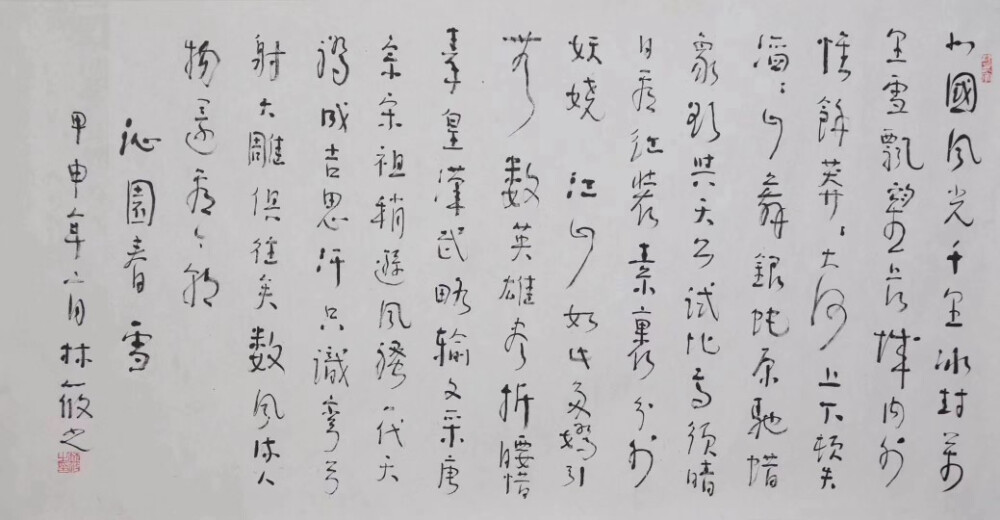 北國風光千里冰封萬
里雪飄望长城内外
惟餘莽々大河上下頓失
滔々山舞銀蛇原馳蜡
象欲與天公試比高須晴
日看红装素裹分外
妖嬈 江山如此多嬌引
無数英雄竞折腰惜
秦皇漢武略输文采唐
宗宋祖稍遜風騷一代天
驕成吉思汗只識彎弓
射大雕俱往矣数風流人
物還看今朝
沁園春 雪
甲申年二月林筱之